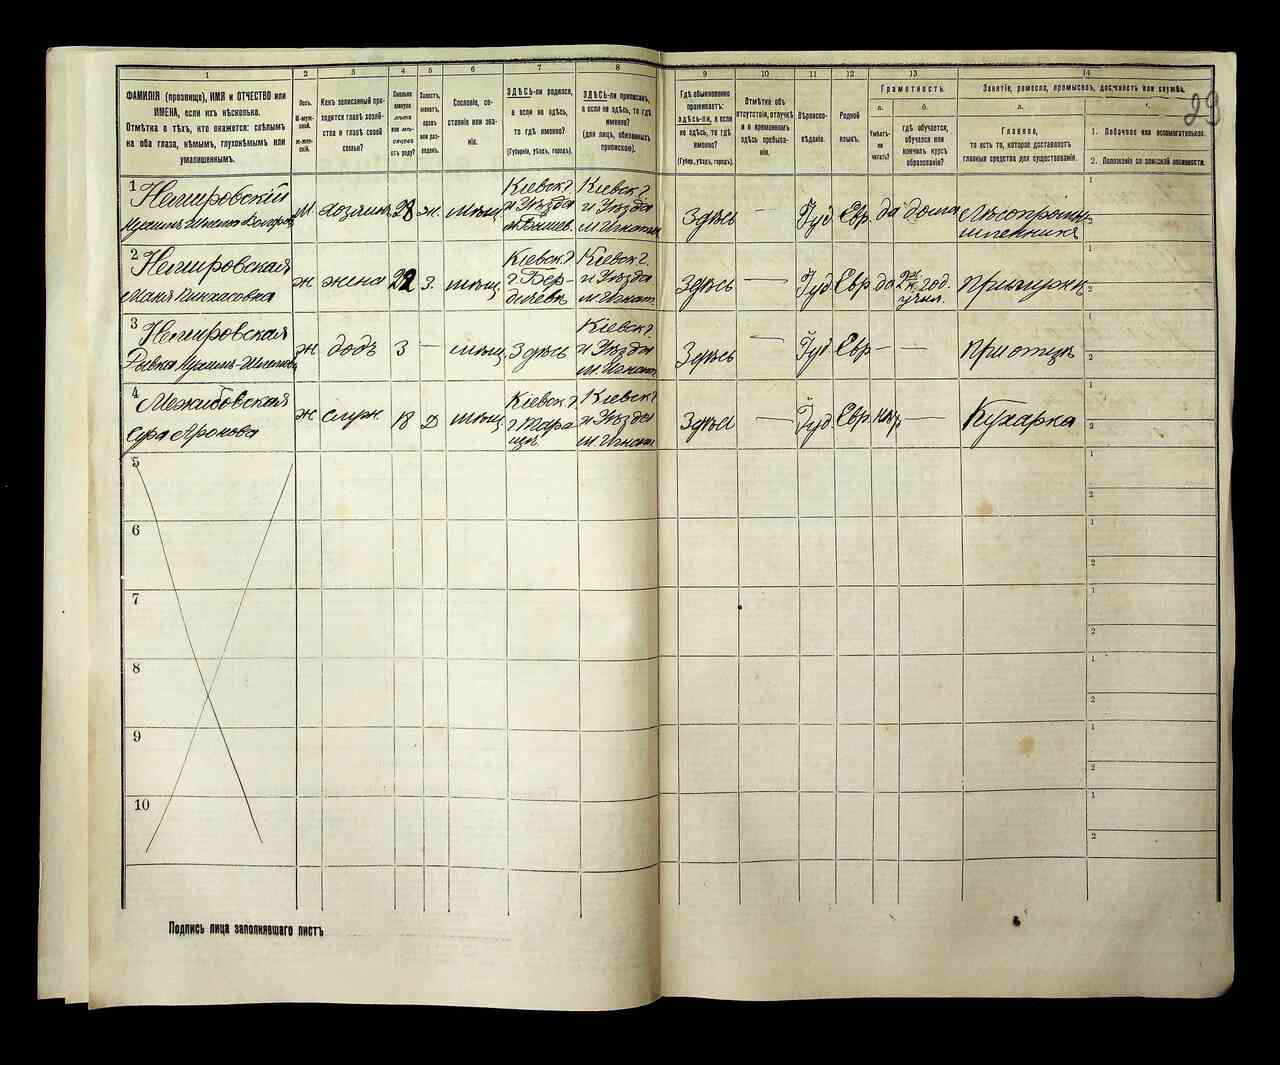 29
1
2
3
4
5
6
7
8
9
10
11
12
13
14
ФАМИЛІЯ (прозвище), ИМЯ и ОТЧЕСТВО или
ИМЕНА, если ихъ нѣсколько.
Отмѣтка о тѣхъ, кто окажется: слѣпымъ
на оба глаза, нѣмымъ, глухонѣмымъ или
умалишеннымъ.
Полъ.
М-муж-
ской.
Ж-жен-
скій.
Какъ записанный при-
ходится главѣ хозяй-
ства и главѣ своей
семьи?
Сколько
минуло
лѣтъ
или мѣ-
сяцевъ
отъ роду?
Холостъ,
женатъ,
вдовъ
или раз-
веденъ.
Сословіе, со-
стояніе или зва-
ніе.
ЗДѢСЬ-ли родился,
а если не здѣсь,
то гдѣ именно?
(Губернія, уѣздъ, городъ).
ЗДѢСЬ-ли приписанъ,
а если не здѣсь, то гдѣ
именно?
(для лицъ, обязанныхъ
припискою).
Гдѣ обыкновенно
проживаетъ:
здѣсь-ли, а если
не здѣсь, то гдѣ
именно?
(Губер., уѣздъ, городъ).
Отмѣтка объ
отсутствіи, отлучкѣ
и о временномъ
здѣсь пребыва-
ніи.
Вѣроиспо-
вѣданіе.
Родной
языкъ.
Грамотность.
а.
Умѣетъ-
ли
читать?
б.
гдѣ обучается,
обучался или
кончилъ курсъ
образованія?
Занятіе, ремесло, промыселъ, должность или служба.
а.
Главное,
то есть то, которое доставляетъ
главныя средства для существованія.
1. Побочное или вспомогательное.
2. Положеніе по воинской повинности.
1 Немировскій
м. хозяинъ 28 ж. мѣщ. Кіевск. г. и уѣзда Кіевск. г. и Уѣзда Здѣсь — Іуд Евр. да дома Лѣсопромыш-
ленникъ
2 Немировская
Маня Пинхасовна ж жена 22 з. мѣщ. Кіевск. г. г. Бер-
дичевъ Кіевск. г. и Уѣзда м Игнат. Здѣсь — Іуд Евр да учил. При мужѣ
3 Немировская
Рывка ж дочь 3 — мѣщ. Здѣсь Кіевск. г. и Уѣзда м Игнат. Здѣсь — Іуд Евр — — При отцѣ
4 Межибовская
Сура Аронова ж служ. 18 Д мѣщ. Кіевск. г. г Тара
щи Кіевск. г. и Уѣзда м Игнат. Здѣсь — Іуд Евр. нѣт — Кухарка
5
6
7
8
9
10
1
2
1
2
1
2
1
2
1
2
1
2
1
2
1
2
1
2
1
2
Подпись лица заполнявшаго листъ